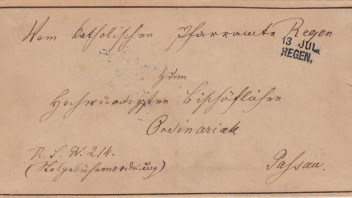 Vom katholischen Pfarramte Regen
13 JUL.
REGEN.
zum
Hochwürdigsten Bischöflichen
Ordinariat
Passau.
R. S. N. 214.
(Stolgebührenordnung)